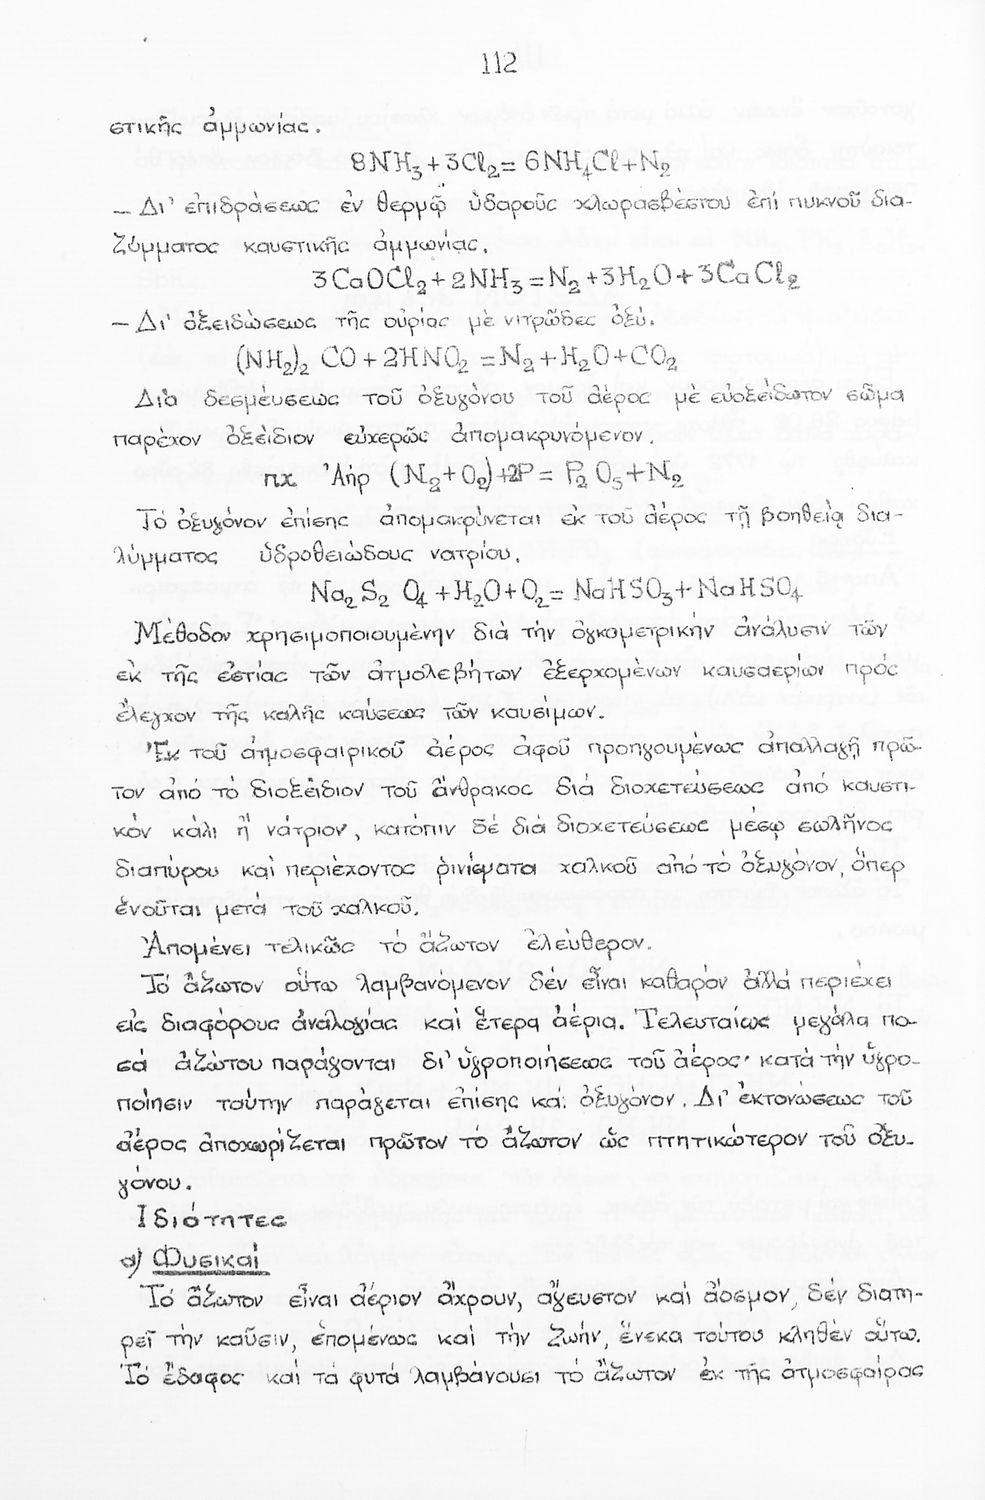 112
στικῆς ἀμμωνίας.
8NH₃+3Cl₂= 6NH₄Cl+N₂
— Δι' ἐπιδράσεως ἐν θερμῷ ὑδαροῦς χλωρασβέστου ἐπί πυκνοῦ δια-
λύμματος καυστικῆς ἀμμωνίας.
3CaOCl₂+2NH₃=N₂+3H₂O+3CaCl₂
— Δι' ὀξειδώσεως τῆς οὐρίας μὲ νιτρῶδες ὀξύ.
(NH₂)₂ CO+2HNO₂ =N₂+H₂O+CO₂
Διὰ δεσμεύσεως τοῦ ὀξυγόνου τοῦ ἀέρος μὲ εὐοξείδωτον σῶμα
παρέχον ὀξείδιον εὐχερῶς ἀπομακρυνόμενον.
πχ Ἀήρ (N₂+O₂)+2P= P₂ O₅+N₂
Τό ὀξυγόνον ἐπίσης ἀπομακρύνεται ἐκ τοῦ ἀέρος τῇ βοηθείᾳ δια-
λύμματος ὑδροθειώδους νατρίου.
Na₂S₂ O₄+H₂O+O₂= NaHSO₃+NaHSO₄
Μέθοδον χρησιμοποιουμένην διὰ τὴν ὀγκομετρικὴν ἀνάλυσιν τῶν
ἐκ τῆς ἑστίας τῶν ἀτμολεβήτων ἐξερχομένων καυσαερίων πρός
ἔλεγχον τῆς καλῆς καύσεως τῶν καυσίμων.
Ἐκ τοῦ ἀτμοσφαιρικοῦ ἀέρος ἀφοῦ προηγουμένως ἀπαλλαγῇ πρῶ-
τον ἀπό τὸ διοξείδιον τοῦ ἄνθρακος διὰ διοχετεύσεως ἀπό καυστι-
κόν κάλι ἤ νάτριον, κατόπιν δέ διὰ διοχετεύσεως μέσῳ σωλῆνος
διαπύρου καί περιέχοντος ῥινίσματα χαλκοῦ ἀπό τό ὀξυγόνον, ὅπερ
ἑνοῦται μετά τοῦ χαλκοῦ.
Ἀπομένει τελικῶς τό ἄζωτον ἐλεύθερον.
Τό ἄζωτον οὕτω λαμβανόμενον δέν εἶναι καθαρόν ἀλλά περιέχει
εἰς διαφόρους ἀναλογίας καί ἕτερα ἀέρια. Τελευταίως μεγάλα πο-
σά ἀζώτου παράγονται δι' ὑγροποιήσεως τοῦ ἀέρος· κατά τήν ὑγρο-
ποίησιν ταύτην παράγεται ἐπίσης και ὀξυγόνον. Δι' ἐκτονώσεως τοῦ
ἀέρος ἀποχωρίζεται πρῶτον τό ἄζωτον ὡς πτητικώτερον τοῦ ὀξυ-
γόνου.
Ἰδιότητες
α) Φυσικαί
Τό ἄζωτον εἶναι ἀέριον ἄχρουν, ἄγευστον καί ἄοσμον, δέν διατη-
ρεῖ τὴν καῦσιν, ἑπομένως καί τὴν ζωήν, ἕνεκα τούτου κληθέν οὕτω.
Τό ἔδαφος καί τά φυτά λαμβάνουσι τό ἄζωτον ἐκ τῆς ἀτμοσφαίρας